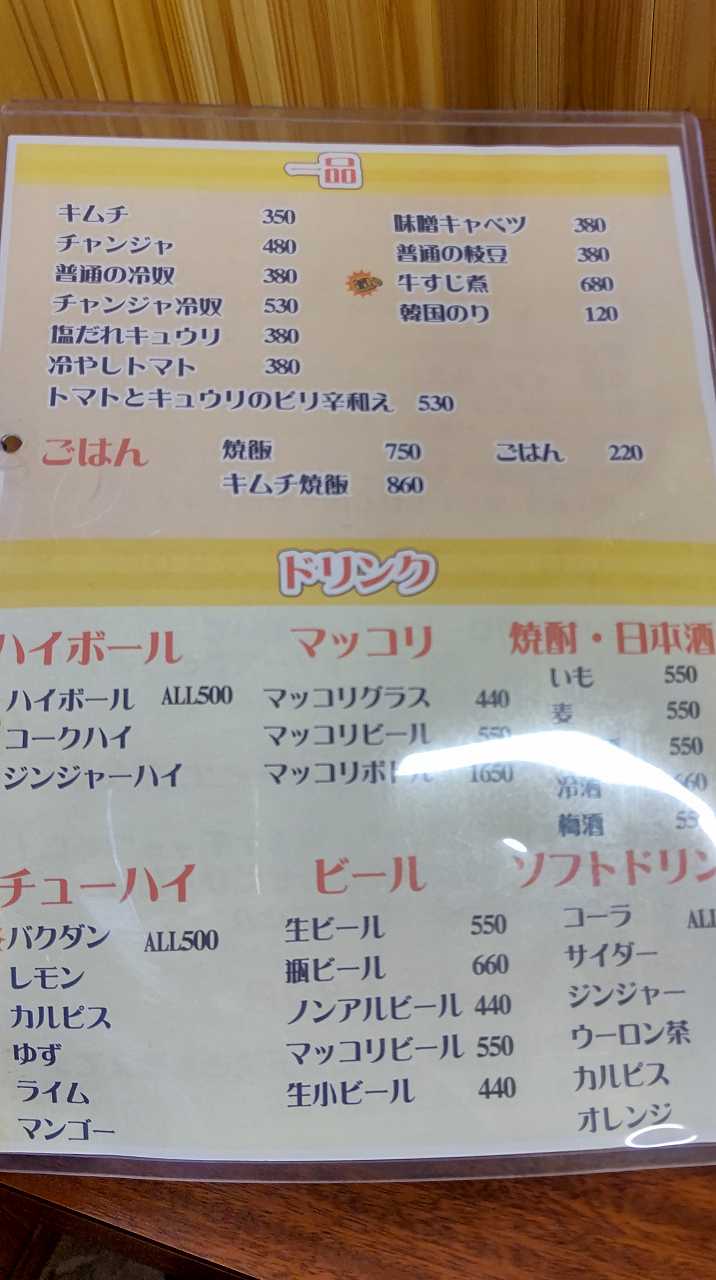 一品
キムチ 350
チャンジャ 480
普通の冷奴 380
チャンジャ冷奴 530
塩だれキュウリ 380
冷やしトマト 380
トマトとキュウリのピリ辛和え 530
味噌キャベツ 380
普通の枝豆 380
牛すじ煮 680
韓国のり 120
ごはん
焼飯 750
キムチ焼飯 860
ごはん 220
ドリンク
ハイボール
ハイボール ALL500
コークハイ
ジンジャーハイ
マッコリ
マッコリグラス 440
マッコリビール 550
マッコリボトル 1650
焼酎・日本酒
いも 550
麦 550
550
冷酒 660
梅酒 55
チューハイ
バクダン ALL500
レモン
カルピス
ゆず
ライム
マンゴー
ビール
生ビール 550
瓶ビール 660
ノンアルビール 440
マッコリビール 550
生小ビール 440
ソフトドリン
コーラ ALL
サイダー
ジンジャー
ウーロン茶
カルピス
オレンジ